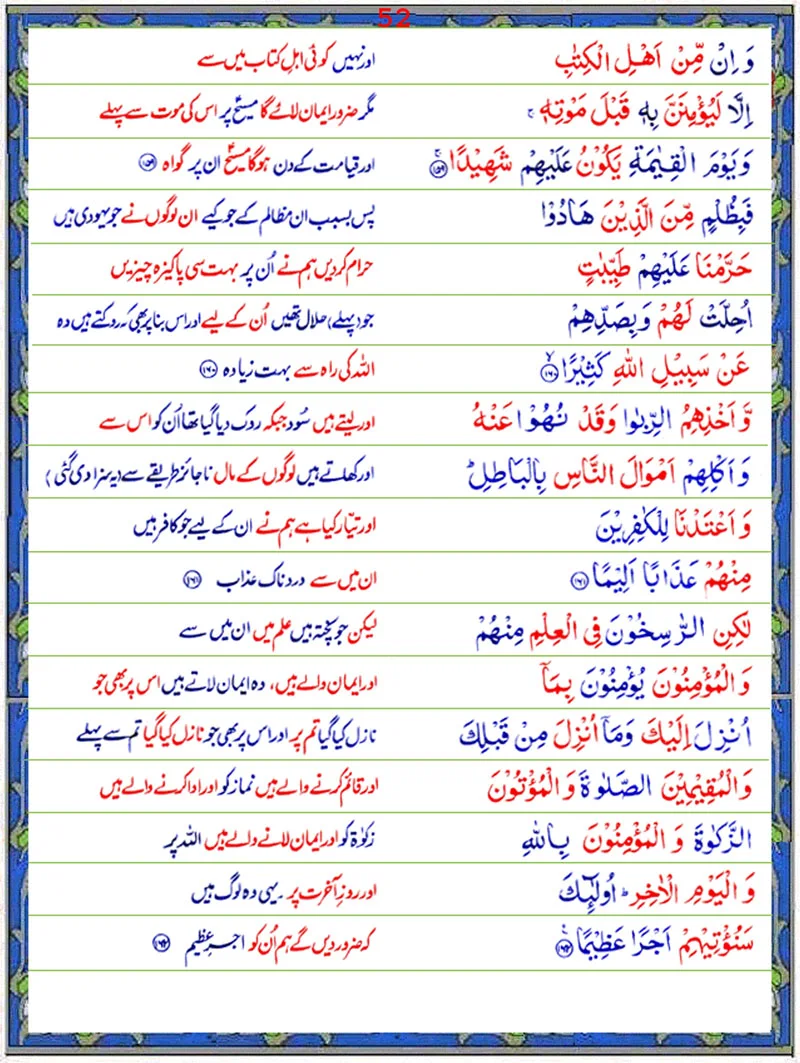 52
وَ اِنْ مِّنْ اَهْلِ الْكِتٰبِ اور نہیں کوئی اہلِ کتاب میں سے
اِلَّا لَیُؤْمِنَنَّ بِهٖ قَبْلَ مَوْتِهٖ ۚ مگر ضرور ایمان لائے گا مسیحؑ پر اس کی موت سے پہلے
وَ یَوْمَ الْقِیٰمَةِ یَكُوْنُ عَلَیْهِمْ شَهِیْدًا ۚ ۱۵۹ اور قیامت کے دن ہوگا مسیحؑ ان پر گواہ ۱۵۹
فَبِظُلْمٍ مِّنَ الَّذِیْنَ هَادُوْا پس بسبب ان مظالم کے جو کیے ان لوگوں نے جو یہودی ہیں
حَرَّمْنَا عَلَیْهِمْ طَیِّبٰتٍ حرام کردیں ہم نے اُن پر بہت سی پاکیزہ چیزیں
اُحِلَّتْ لَهُمْ وَ بِصَدِّهِمْ جو (پہلے) حلال تھیں اُن کے لیے اور اس بنا پر بھی کہ روکتے ہیں وہ
عَنْ سَبِیْلِ اللّٰهِ كَثِیْرًا ۙ ۱۶۰ اللہ کی راہ سے بہت زیادہ ۱۶۰
وَّ اَخْذِهِمُ الرِّبٰوا وَ قَدْ نُهُوْا عَنْهُ اور لیتے ہیں سُود جبکہ روک دیا گیا تھا اُن کو اس سے
وَ اَكْلِهِمْ اَمْوَالَ النَّاسِ بِالْبَاطِلِ ؕ اور کھاتے ہیں لوگوں کے مال ناجائز طریقے سے (یہ سزا دی گئی)
وَ اَعْتَدْنَا لِلْكٰفِرِیْنَ اور تیّار کیا ہے ہم نے ان کے لیے جو کافر ہیں
مِنْهُمْ عَذَابًا اَلِیْمًا ۱۶۱ ان میں سے دردناک عذاب ۱۶۱
لٰكِنِ الرّٰسِخُوْنَ فِی الْعِلْمِ مِنْهُمْ لیکن جو پختہ ہیں علم میں ان میں سے
وَ الْمُؤْمِنُوْنَ یُؤْمِنُوْنَ بِمَاۤ اور ایمان والے ہیں، وہ ایمان لاتے ہیں اس پر بھی جو
اُنْزِلَ اِلَیْكَ وَ مَاۤ اُنْزِلَ مِنْ قَبْلِكَ نازل کیا گیا تم پر اور اس پر بھی جو نازل کیا گیا تم سے پہلے
وَ الْمُقِیْمِیْنَ الصَّلٰوةَ وَ الْمُؤْتُوْنَ اور قائم کرنے والے ہیں نماز کو اور ادا کرنے والے ہیں
الزَّكٰوةَ وَ الْمُؤْمِنُوْنَ بِاللّٰهِ زکوٰۃ کو اور ایمان لانے والے ہیں اللہ پر
وَ الْیَوْمِ الْاٰخِرِ ؕ اُولٰٓىِٕكَ اور روزِ آخرت پر۔ یہی وہ لوگ ہیں
سَنُؤْتِیْهِمْ اَجْرًا عَظِیْمًا ۠ ۱۶۲ کہ ضرور دیں گے ہم اُن کو اجرِ عظیم ۱۶۲